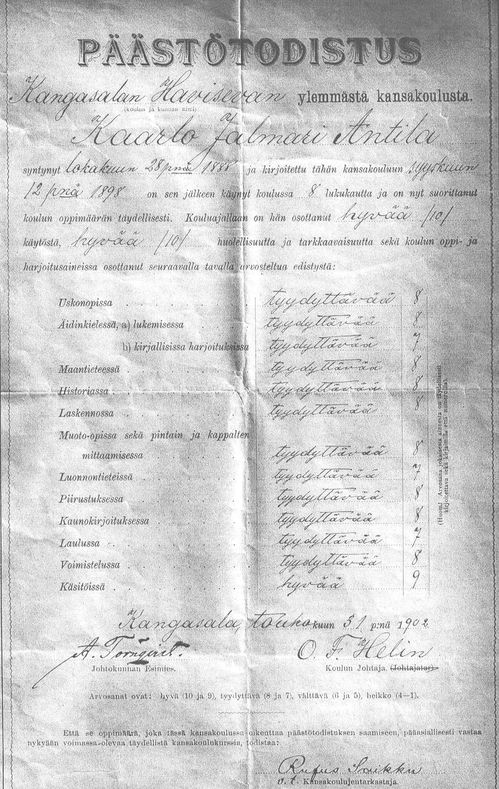 PÄÄSTÖTODISTUS
Kangasalan Havisevan ylemmästä kansakoulusta.
(koulun ja kunnan nimi)
Kaarlo Jalmari Antila
syntynyt lokakuun 28 pnä 1888 ja kirjoitettu tähän kansakouluun syyskuun
12 pnä 1898 on sen jälkeen käynyt koulussa 8 lukukautta ja on nyt suorittanut
koulun oppimäärän täydellisesti. Kouluajallaan on hän osottanut hyvää /10/
käytöstä, hyvää /10/ huolellisuutta ja tarkkaavaisuutta sekä koulun oppi- ja
harjoitusaineissa osottanut seuraavalla tavalla arvosteltua edistystä:
Uskonopissa tyydyttävää 8
Äidinkielessä, a) lukemisessa tyydyttävää 8
b) kirjallisissa harjoituksissa tyydyttävää 7
Maantieteessä tyydyttävää 8
Historiassa tyydyttävää 8
Laskennossa tyydyttävää 8
Muoto-opissa sekä pintain ja kappalten
mittaamisessa tyydyttävää 8
Luonnontieteissä tyydyttävää 7
Piirustuksessa tyydyttävää 8
Kaunokirjoituksessa tyydyttävää 8
Laulussa tyydyttävää 7
Voimistelussa tyydyttävää 8
Käsitöissä hyvää 9
Kangasala, toukokuun 31 p:nä 1902
A. Törngren. O. F. Helin
Johtokunnan Esimies. Koulun Johtaja. (Johtajatar).
Arvosanat ovat: hyvä (10 ja 9), tyydyttävä (8 ja 7), välttävä (6 ja 5), heikko (4—1).
Että se oppimäärä, joka tässä kansakoulussa oikeuttaa päästötodistuksen saamiseen, pääasiallisesti vastaa
nykyään voimassa-olevaa täydellistä kansakoulukurssia, todistaa:
Rufus Saikku
v. t. Kansakoulujentarkastaja.